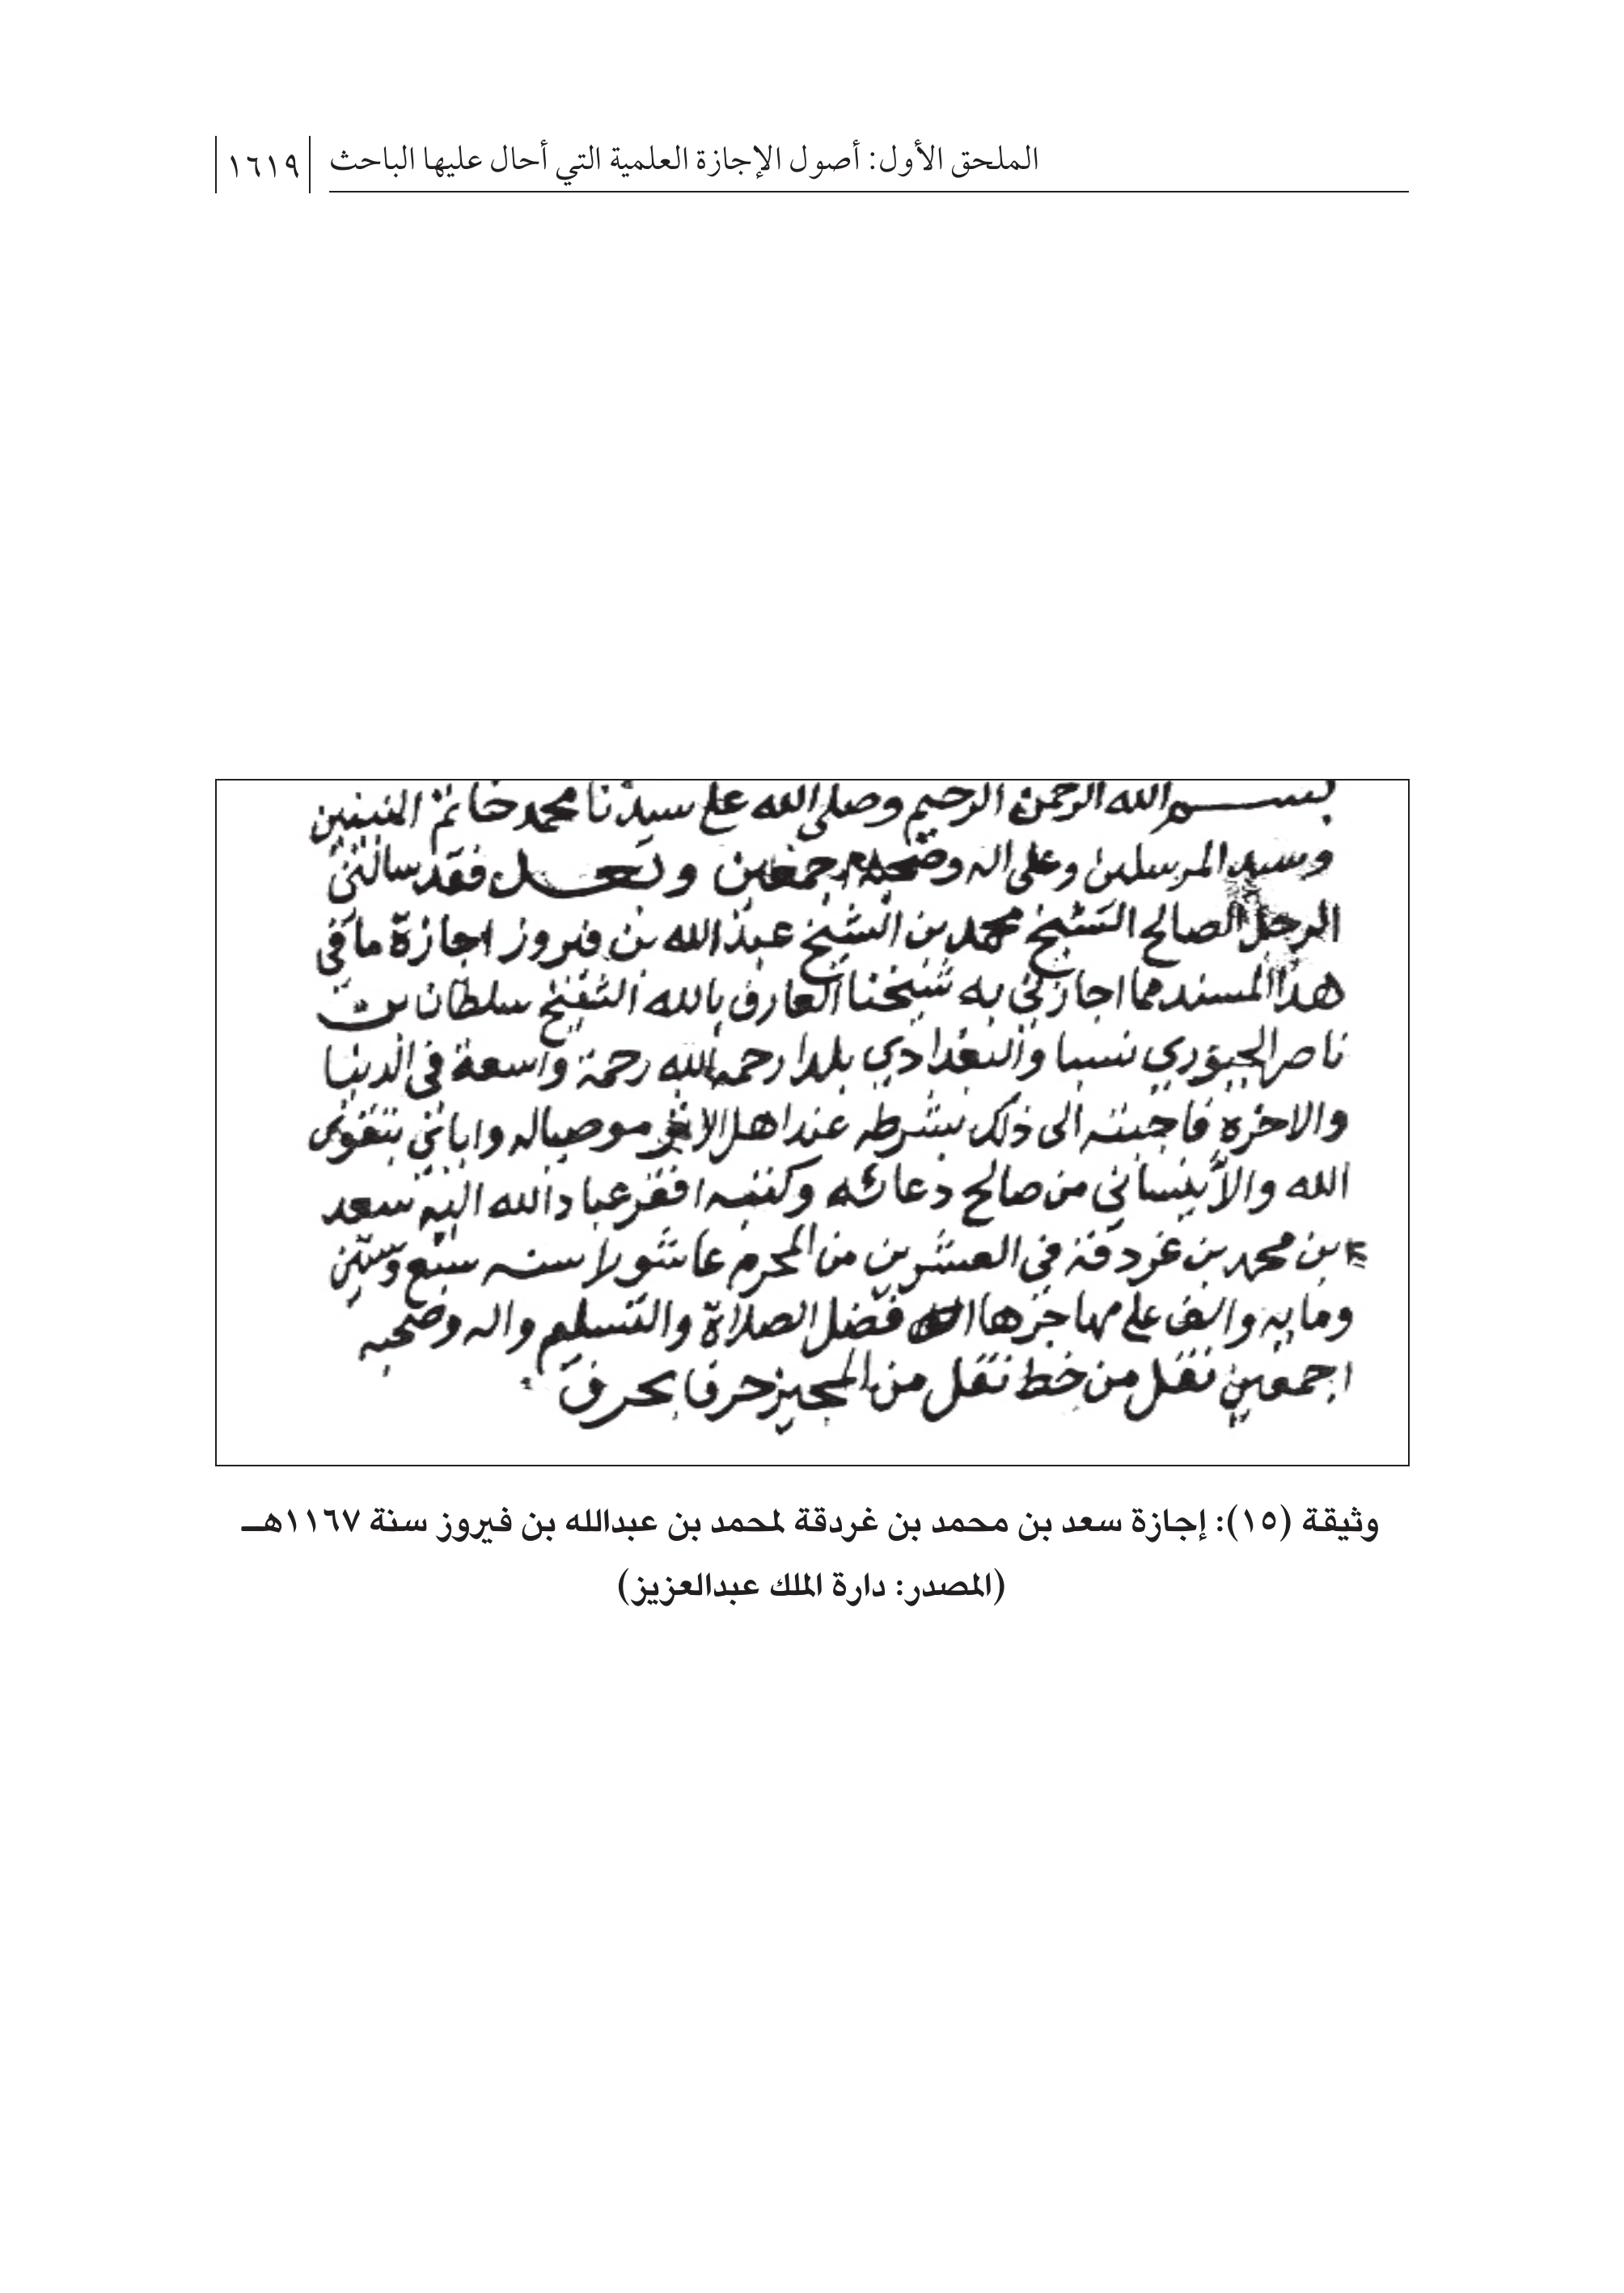 الملحق الأول: أصول الإجازة العلمية التي أحال عليها الباحث ١٦١٩
بسم الله الرحمن الرحيم وصلى الله على سيدنا محمد خاتم النبيين
وسيد المرسلين وعلى اله وصحبه اجمعين وبعد فقد سالني
الرجل الصالح الشيخ محمد بن الشيخ عبد الله بن فيروز اجازة ما في
هذا المسند مما اجازني به شيخنا العارف بالله الشيخ سلطان بن
ناصر الجبوري نسبا والبغدادي بلدا رحمه الله رحمة واسعة في الدنيا
والاخرة فاجبته الى ذلك بشرطه عند اهل الاثر موصيا له واياني بتقوى
الله والا ينساني من صالح دعائه وكتبه افقر عباد الله اليه سعد
بن محمد بن غردقة في العشرين من المحرم عاشورا سنه سبع وستين
ومايه والف على مهاجرها فضل الصلاة والتسليم واله وصحبه
اجمعين نقل من خط نقل من المجيز حرفا بحرف
وثيقة (١٥): إجازة سعد بن محمد بن غردقة لمحمد بن عبدالله بن فيروز سنة ١١٦٧هـ
(المصدر: دارة الملك عبدالعزيز)